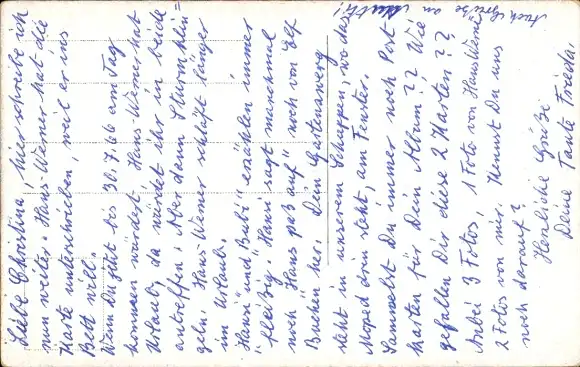 Liebe Christina, hier schreibe ich
nun weiter. Hans-Werner hat die
Karte unterschrieben, weil er ins
Bett will.
Wenn Du jetzt bis 30.7.66 am Tag
kommen würdest. Hans-Werner hat
Urlaub, da würdet ihr in beide
antreffen. Aber dann Sturmklin=
geln. Hans-Werner schläft länger
im Urlaub.
"Hansi" und Bubi" erzählen immer
"fleißig. Hansi sagt manchmal
noch "Hans paß auf" noch von Elf
Buchen her. Dein Gartenzwerg
steht in unserem Schuppen, wo das
Moped drin steht, am Fenster.
Sammelst Du immer noch Post
karten für Dein Album?? Wie
gefallen Dir diese 2 Karten??
Anbei 3 Fotos, 1 Foto von Hans Werner
2 Fotos von mir. Kennst Du uns
noch darauf?
Herzliche Grüße
Deine Tante Frieda.
Auch Grüße an Mutti!